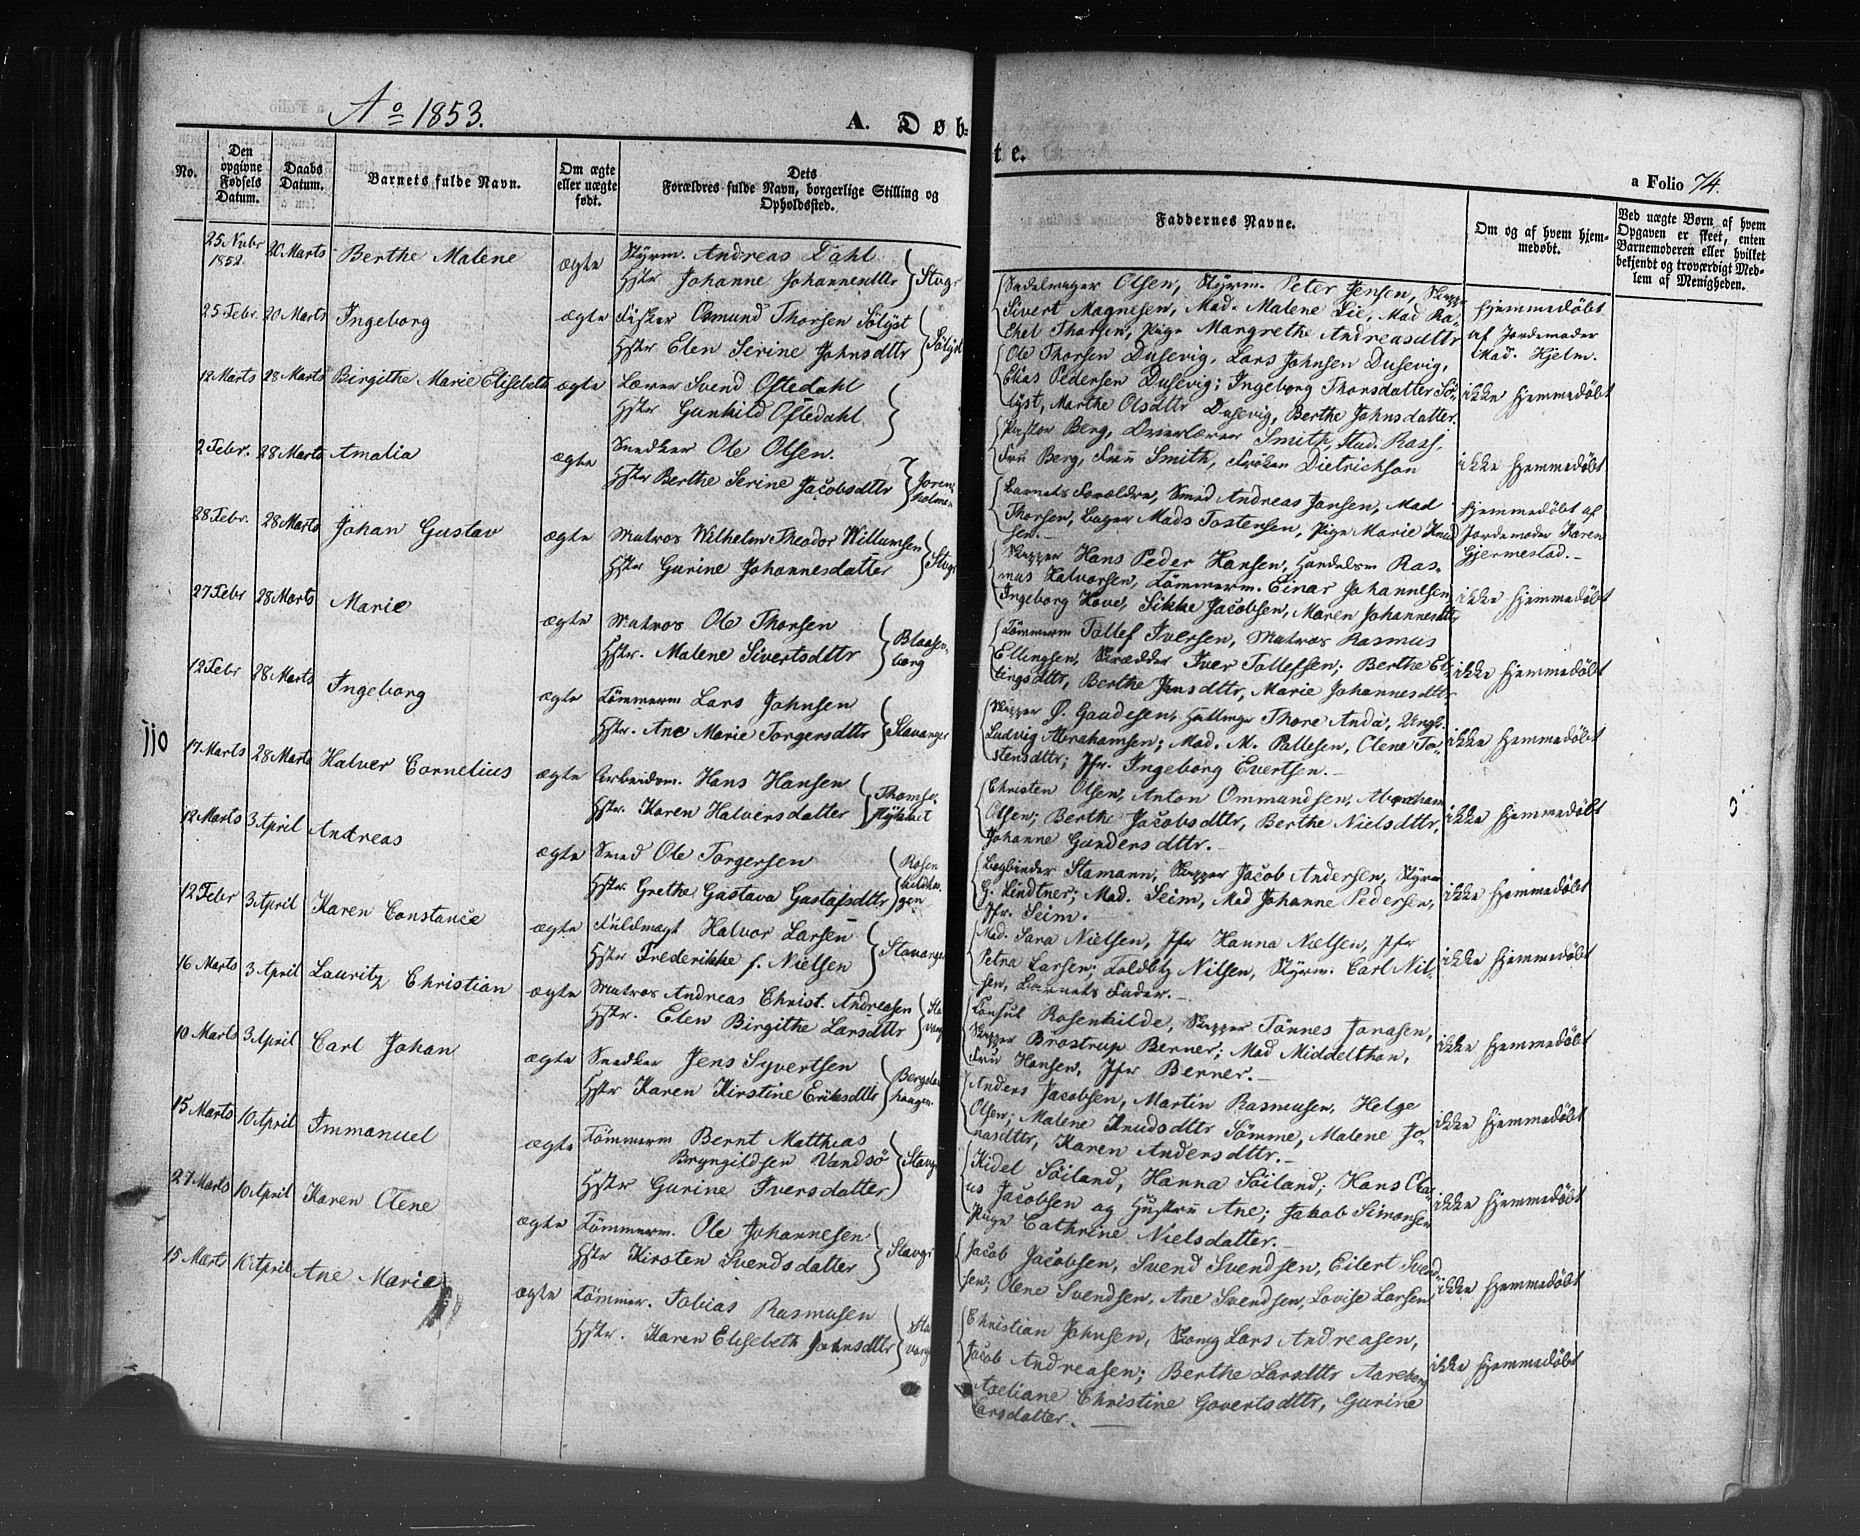 Ao 1853.
A. Døb=
te.
a Folio 74.
No.
Den opgivne Fødsels Datum.
Daabs Datum.
Barnets fulde Navn.
Om ægte eller uægte født.
Dets Forældres fulde Navn, borgerlige Stilling og Opholdssted.
Faddernes Navne.
Om og af hvem hjemmedøbt.
Ved uægte Børn af hvem Opgaven er skeet, enten Barnemoderen eller hvilket bekjendt og troværdigt Medlem af Menigheden.
25 Nvbr 1852 20 Marts Berthe Malene ægte Styrm. Andreas Dahl
Hstr Johanne Johannesdttr Stvgr
Sadelmager Olsen, Styrm. Peter Jensen,
Sivert Magnesen, Mad. Malene Lie, Mad Ra-
chel Thorsen, Pige Margrethe Andreasdttr
Hjemmedøbt
af Jordemoder
Mad. Hjelm.
25 Febr. 20 Marts Ingeborg ægte Fisker Osmund Thorsen Sölyst
Hstr Elen Serine Johnsdttr Sölyst
Ole Thorsen Dusevig, Lars Johnsen Dusevig,
Elias Pedersen Dusevig; Ingeborg Thorsdatter Sö-
lyst, Marthe Olsdttr Dusevig, Berthe Johnsdatter.
ikke hjemmedöbt
12 Marts 28 Marts Birgithe Marie Elisebeth ægte Lærer Svend Oftedahl
Hstr Gunhild Oftedahl
Pastor Berg, Overlærer Smith, Stud. Rasf,
Fru Berg, Fru Smith, Fröken Dietrichson
ikke hjemmedöbt
2 Febr. 28 Marts Amalia ægte Snedker Ole Olsen.
Hstr Berthe Serine Jacobsdttr Joren-
holmen
Barnets Forældre, Smed Andreas Jansen, Mad
Thorsen, Bager Mads Tostensen, Pige Marie Knud
sen.
Hjemmedöbt af
Jordemoder Karen
Gjermestad.
28 Febr. 28 Marts Johan Gustav ægte Matros Wilhelm Theodor Willumsen
Hstr Gurine Johannesdatter Stvgr
Skipper Hans Peder Hansen, Handelsm Ras-
mus Halvorsen, Tömmerm. Einar Johannesen,
Ingeborg Hove, Sikke Jacobsen, Maren Johannesdttr
ikke hjemmedöbt
27 Febr 28 Marts Marie ægte Matros Ole Thorsen
Hstr. Malene Sivertsdttr Blaasen-
borg
Tömmerm Tollef Iversen, Matros Rasmus
Ellingsen, Skrædder Iver Tollefsen; Berthe El-
lingsdttr, Berthe Jensdttr, Marie Johannesdttr
ikke hjemmedöbt
12 Febr 28 Marts Ingeborg ægte Tömmerm Lars Johnsen
Hstr. Ane Marie Torgersdttr Stavanger
Skipper Ø. Gaudesen, Thore Anda, Ungk.
Ludvig Abrahamsen; Mad. M. Pallesen, Olene To-
stensdttr; Jfr. Ingeborg Evertsen.
ikke hjemmedöbt
110
17 Marts 28 Marts Halver Cornelius ægte Arbeidsm. Hans Hansen
Hstr. Karen Halversdatter Thomse-
stykket
Christen Olsen, Anton Ommundsen, Abraham
Olsen; Berthe Jacobsdttr, Berthe Nielsdttr,
Johanne Gundersdttr.
ikke hjemmedöbt
12 Marts 3 April Andreas ægte Smed Ole Torgersen
Hstr. Grethe Gustava Gustafsdttr Rosen
kildeha-
gen
Bogbinder Stamann, Skipper Jacob Andersen, Styrm
G. Lindtner; Mad. Seim, Mad Johanne Pedersen,
Jfr. Seim.
ikke hjemmedöbt
12 Febr 3 April Karen Constance ægte Fuldmægt Halvor Larsen
Hstr Frederikke f. Nielsen Stavanger
Mad. Sara Nielsen, Jfr Hanna Nielsen, Jfr
Petra Larsen; Toldbtj Nilsen, Styrm. Carl Nil-
sen, Barnets Fader.
ikke hjemmedöbt
16 Marts 3 April Lauritz Christian ægte Matros Andreas Christ. Andreasen
Hstr. Elen Birgithe Larsdttr Sta
vang
Consul Rosenkilde, Skipper Tönnes Jonasen,
Skipper Brostrup Berner; Mad Middelthon,
Fru Hansen, Jfr Berner.
ikke hjemmedöbt
10 Marts 3 April Carl Johan ægte Snedker Jens Syvertsen
Hstr Karen Kirstine Eriksdttr Bergela
haugen
Anders Jacobsen, Martin Rasmusen, Helge
Olsen; Malene Knudsdttr Sömme, Malene Jo-
nasdttr, Karen Andersdttr.
ikke hjemmedöbt
15 Marts 10 April Immanuel ægte Tömmerm Bernt Matthias
Bryngildsen Vandsö
Hstr Gurine Iversdatter Stavgr
Kidel Söiland, Hanna Söiland; Hans Cla-
us Jacobsen og Hustru Ane; Jakob Simonsen
Pige Cathrine Nielsdatter.
ikke hjemmedöbt
27 Marts 10 April Karen Olene ægte Tömmerm. Ole Johannesen
Hstr Kirsten Svendsdatter Stavgr
Jacob Jacobsen, Svend Svendsen, Eilert Svend-
sen; Olene Svendsen, Ane Svendsen, Lovise Larsen
ikke hjemmedöbt
15 Marts 10 April Ane Marie ægte Tömmer. Tobias Rasmusen
Hstr. Karen Elisebeth Johnsdttr Sta
vang
Christian Johnsen, Lars Andreasen,
Jacob Andreasen; Berthe Larsdttr Aareberg
Axeliane Christine Govertsdttr, Gurine
Larsdatter.
ikke hjemmedöbt